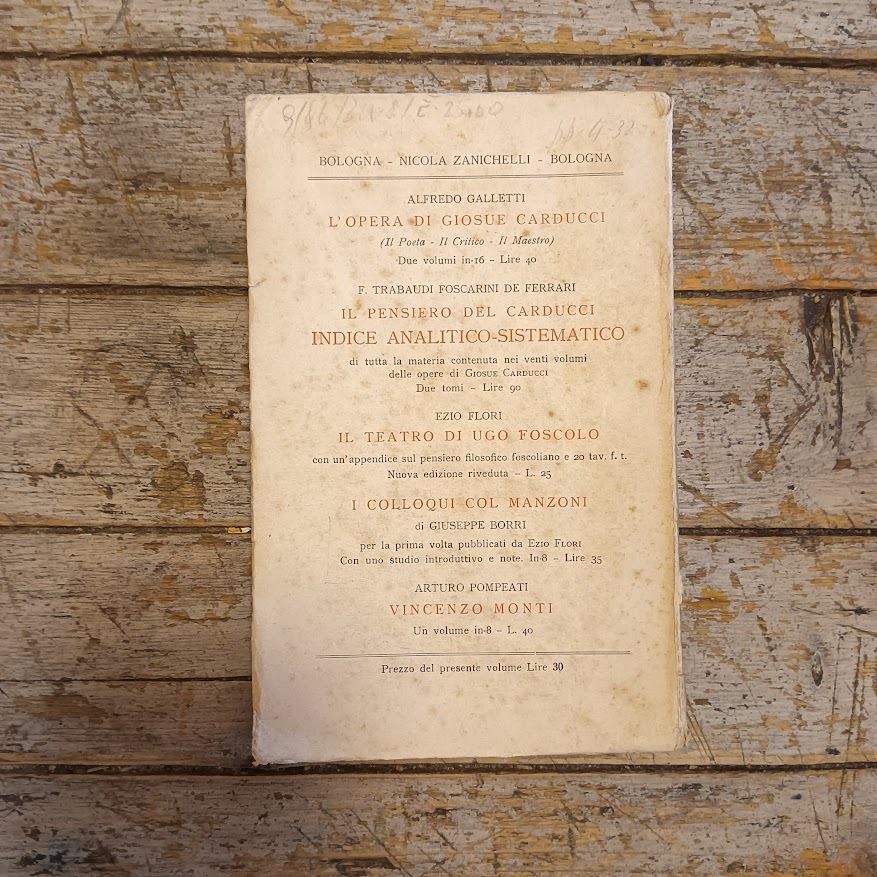 BOLOGNA - NICOLA ZANICHELLI - BOLOGNA
ALFREDO GALLETTI
L'OPERA DI GIOSUE CARDUCCI
(Il Poeta - Il Critico - Il Maestro)
Due volumi in-16 - Lire 40
F. TRABAUDI FOSCARINI DE FERRARI
IL PENSIERO DEL CARDUCCI
INDICE ANALITICO-SISTEMATICO
di tutta la materia contenuta nei venti volumi
delle opere di GIOSUE CARDUCCI
Due tomi - Lire 90
EZIO FLORI
IL TEATRO DI UGO FOSCOLO
con un'appendice sul pensiero filosofico foscoliano e 20 tav. f. t.
Nuova edizione riveduta - L. 25
I COLLOQUI COL MANZONI
di GIUSEPPE BORRI
per la prima volta pubblicati da EZIO FLORI
Con uno studio introduttivo e note. In-8 - Lire 35
ARTURO POMPEATI
VINCENZO MONTI
Un volume in-8 - L. 40
Prezzo del presente volume Lire 30